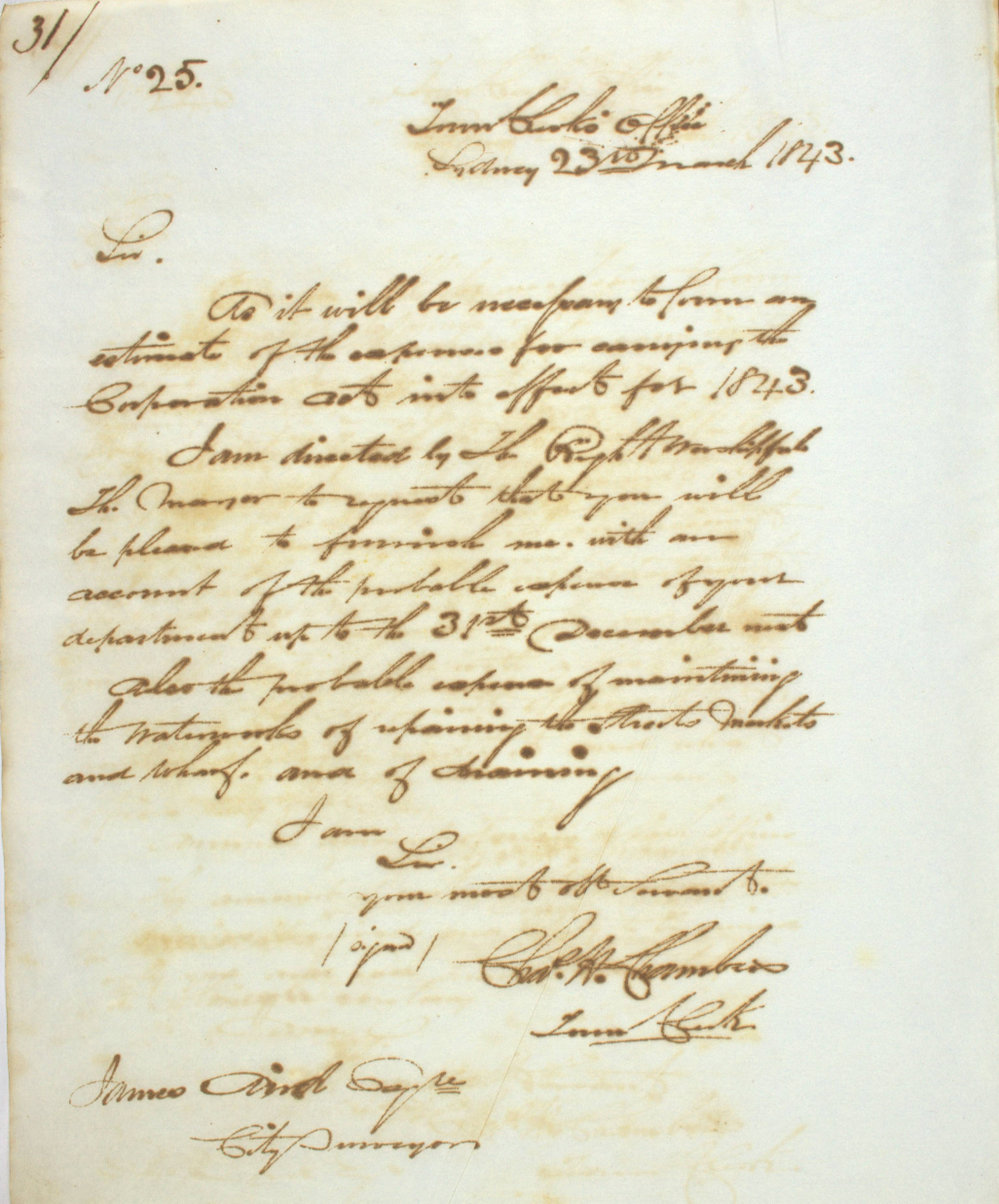 31/
No 25.
Town Clerk's Office
Sydney 23rd March 1843.
Sir.
As it will be necessary to form an
estimate of the expenses for carrying the
Corporation act into effect for 1843.
I am directed by The Right Worshipful
The Mayor to request that you will
be pleased to furnish me. with an
account of the probable expense of your
department up to the 31st December next
Also the probable expense of maintining
the Waterworks of repairing the Streets Markets
and Wharf. and of draining
I am
Sir.
your most obt Servant.
/signed/
Chas. H. Chambers
Town Clerk
James Aird Esqre
City Surveyor